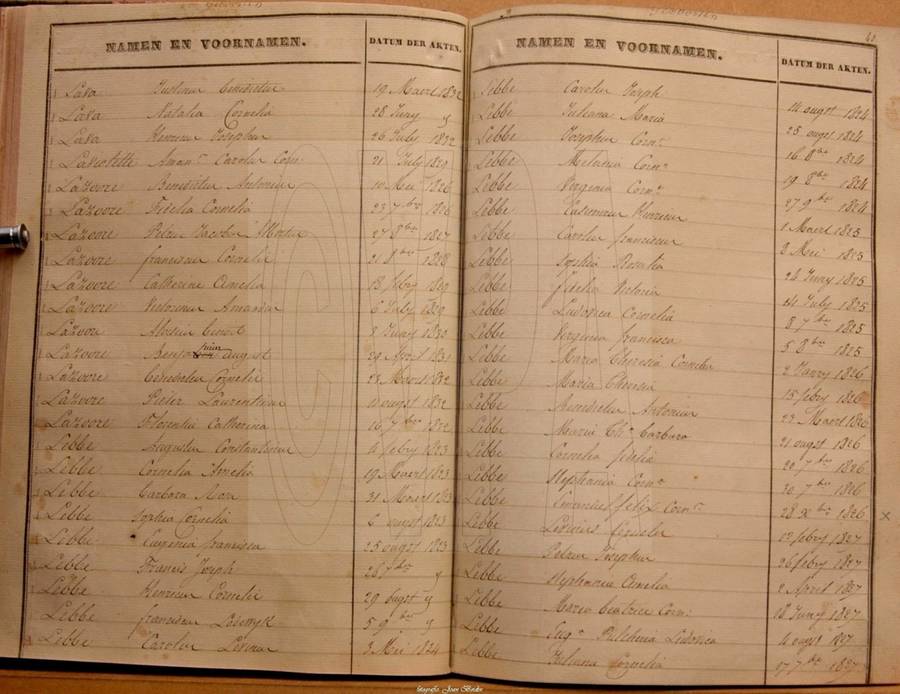 NAMEN EN VOORNAMEN. DATUM DER AKTEN.
Lava Justinus Benedictus 19 Maert 1832
Lava Natalia Cornelia 28 Juny y
Lava Henricus Josephus 26 July 1832
Carolus Corn. 21 July 1829
Lavoore Benedictus Antonius 10 Mei 1826
Lavoore Fidelia Cornelia 23 7bre 1826
Lavoore Petrus Jacobus 27 8bre 1827
Lavoore franciscus Cornelis 21 8bre 1828
Lavoore Catherine Amelia 18 febry 1829
Lavoore Victorina Amanda 6 July 1829
Lavoore Aloisia 8 Juny 1830
Lavoore august 29 April 1831
Lavoore Cornelis 28 Maert 1832
Lavoore Pieter Laurentius 11 augst 1832
Lavoore Florentia Catherina 16 7bre 1832
Lebbe Augustus Constantinus 4 febry 1823
Lebbe Cornelia Amelia 19 Maert 1823
Lebbe Barbara 31 Maert 1823
Lebbe Sophia Cornelia 6 augst 1823
Lebbe Eugenia francisca 25 augst 1823
Lebbe Francis Joseph 26 7bre y
Lebbe Henricus Cornelis 29 augst y
Lebbe franciscus 5 9bre y
Lebbe Carolus 3 Mei 1824
NAMEN EN VOORNAMEN. DATUM DER AKTEN.
Lebbe Carolus Joseph 14 augst 1824
Lebbe Juliana Maria 25 augst 1824
Lebbe Josephus Corn. 16 8bre 1824
Lebbe Melania Corn. 19 8bre 1824
Lebbe Virginia Corn. 27 9bre 1824
Lebbe Casimirus Henricus 1 Maert 1825
Lebbe Carolus franciscus 8 Mei 1825
Lebbe Sophia Rosalia 24 Juny 1825
Lebbe Fidelia Victoria 14 July 1825
Lebbe Ludovica Cornelia 8 7bre 1825
Lebbe Virginia francisca 5 8bre 1825
Lebbe Maria Theresia Cornelia 2 Janry 1826
Lebbe Maria Theresia 15 febry 1826
Lebbe Benedictus Antonius 22 Maert 1826
Lebbe Maria Barbara 21 augst 1826
Lebbe Cornelia fidelia 20 7bre 1826
Lebbe Stephania Corn. 30 7bre 1826
Lebbe felix Corn. 28 Xbre 1826
Lebbe Cornelis 12 febry 1827
Lebbe Petrus Josephus 26 febry 1827
Lebbe Stephania Amelia 2 April 1827
Lebbe Maria beatrice Corn. 18 Juny 1827
Lebbe Pulcheria Ludovica 14 augst 1827
Lebbe Juliana Cornelia 7bre 1827
fotografie Joan Bordier